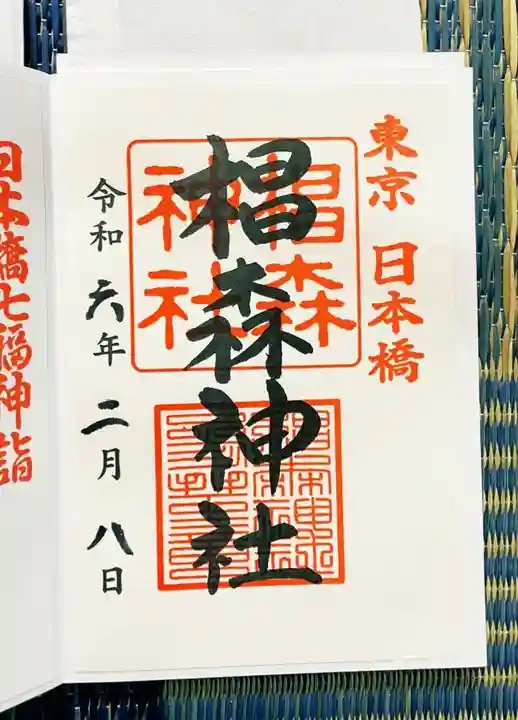 東京 日本橋
椙森神社
椙森
神社
令和六年二月八日
日本橋七福神詣